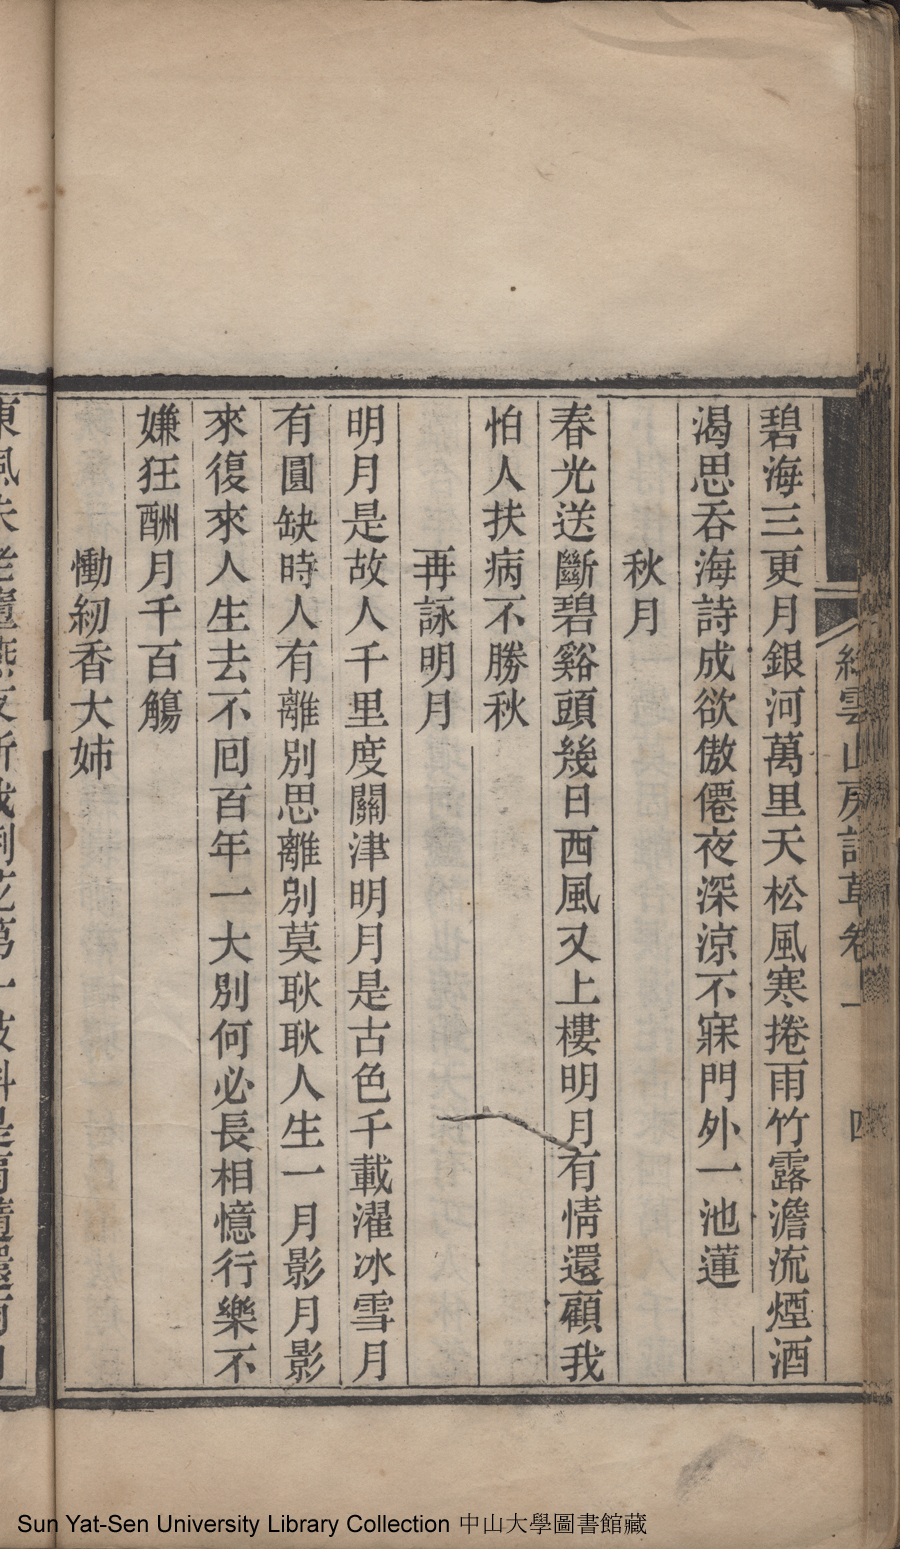 雲山房詩草卷一
四
碧海三更月銀河萬里天松風寒捲雨竹露澹流煙酒
渴思吞海詩成欲傲僊夜深涼不寐門外一池蓮
秋月
春光送斷碧谿頭幾日西風又上樓明月有情還顧我
怕人扶病不勝秋
再詠明月
明月是故人千里度關津明月是古色千載濯冰雪月
有圓缺時人有離別思離別莫耿耿人生一月影月影
來復來人生去不囘百年一大別何必長相憶行樂不
嫌狂酬月千百觴
慟紉香大姊
Sun Yat-Sen University Library Collection 中山大學圖書館藏